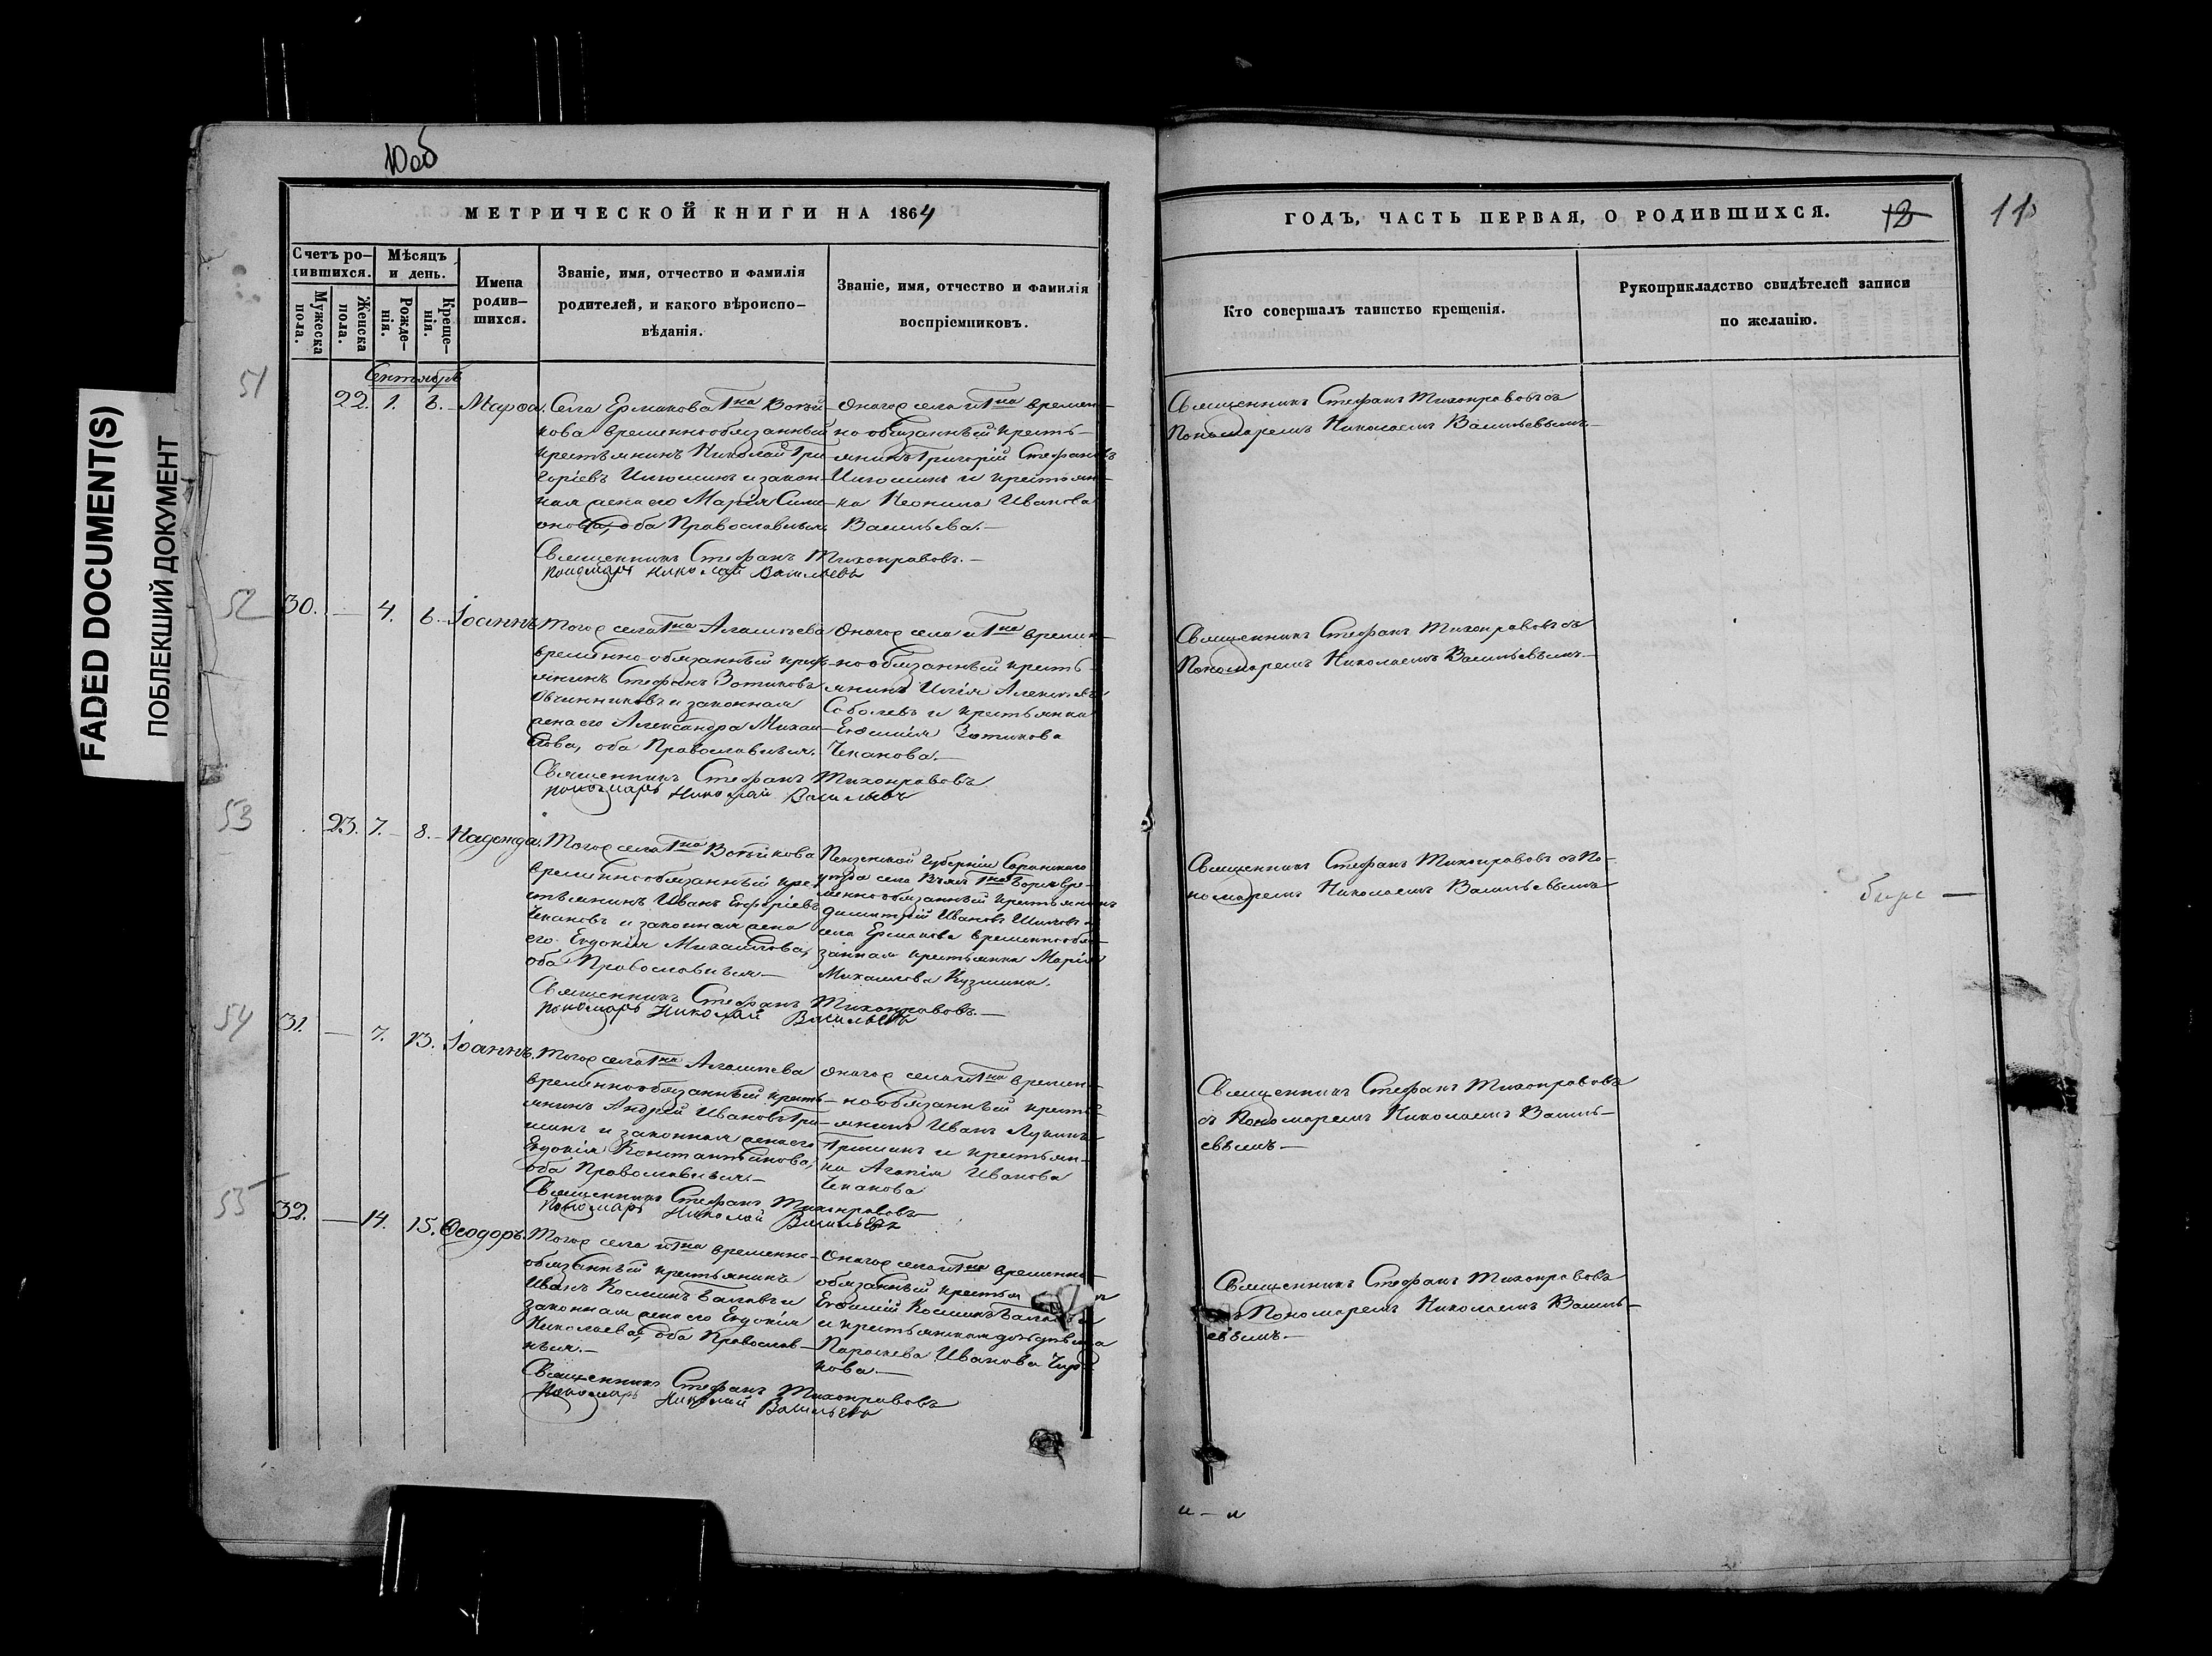 FADED DOCUMENT(S)
ПОБЛЕКШИЙ ДОКУМЕНТ
10 об
МЕТРИЧЕСКОЙ КНИГИ НА 1864
Счетъ ро-
дившихся.
Мужеска пола.
Женска пола.
Мѣсяцъ и день.
Рожде-
нія.
Креще-
нія.
Имена
родив-
шихся.
Званіе, имя, отчество и фамилія
родителей, и какого вѣроиспо-
вѣданія.
Званіе, имя, отчество и фамилія
воспріемниковъ.
Сентябрь
51
22. 1. 6. Марѳа.
Села Ермакова 1на
кова временнообязанный
крестьянинъ Николай Гри
горіевъ и закон-
ная жена его Марія Сими
онова, оба Православныя
Священникъ Стефанъ Тихонравовъ.
Пономарь Николай Васильевъ
Онагоже села и 1на времен-
но обязанный кресть-
янинъ Григорій Стефановъ
и крестьян-
ка Неонила Иванова
Васильева.
52
30. — 4. 6. Іоаннъ
Тогоже села 1на
временно-обязанный крест
янинъ Стефанъ Зотиковъ
Овчинниковъ и законная
жена его Александра Михаи
лова, оба Православныя.
Священникъ Стефанъ Тихонравовъ
Пономарь Николай Васильевъ
Онагоже села и 1на времен-
нообязанный кресть-
янинъ Илія Алексѣевъ
Соболевъ и крестьянка
Евфимія Зотикова
Чеканова.
53
23. 7. 8. Надежда.
Тогоже села 1на
временнообязанный кре-
стьянинъ Иванъ
Чекановъ и законная жена
его Евдокія Михайлова,
оба Православныя
Священникъ Стефанъ Тихонравовъ.
Пономарь Николай Васильевъ
Пензенской Губерніи Саранскаго
уѣзда села
менно обязанный крестьянинъ
Димитрій Ивановъ
села Ермакова временнообя-
занная крестьянка Марія
Михайлова Кузмина.
54
31. — 7. 13. Іоаннъ.
Тогоже села 1на
временнообязанный кресть-
янинъ Андрей Ивановъ Гри-
шинъ и законная жена его
Евдокія Константинова,
оба Православныя.
Священникъ Стефанъ Тихонравовъ
Пономарь Николай Васильевъ
Онагоже села и 1на времен-
нообязанный кресть-
янинъ Иванъ Лукинъ
Гришинъ и крестьян-
ка Агапія Иванова
Чеканова
55
32. — 14. 15. Ѳеодоръ.
Тогоже села и 1на временно-
обязанный крестьянинъ
Иванъ Косминъ и
законная жена его Евдокія
Николаева, оба Православ-
ныя.
Священникъ Стефанъ Тихонравовъ
Пономарь Николай Васильевъ
Онагоже села и 1на временно-
обязанный крестья
Евфимій Косминъ
и крестьянская дочь дѣвица
Параскева Иванова
кова
ГОДЪ, ЧАСТЬ ПЕРВАЯ, О РОДИВШИХСЯ.
12
11
Кто совершалъ таинство крещенія.
Рукоприкладство свидѣтелей записи
по желанію.
Священникъ Стефанъ Тихонравовъ съ
Пономаремъ Николаемъ Васильевымъ
Священникъ Стефанъ Тихонравовъ съ
Пономаремъ Николаемъ Васильевымъ
Священникъ Стефанъ Тихонравовъ съ По-
номаремъ Николаемъ Васильевымъ
Священникъ Стефанъ Тихонравовъ
съ Пономаремъ Николаемъ Василь-
евымъ
Священникъ Стефанъ Тихонравовъ
съ Пономаремъ Николаемъ Василь-
евымъ.